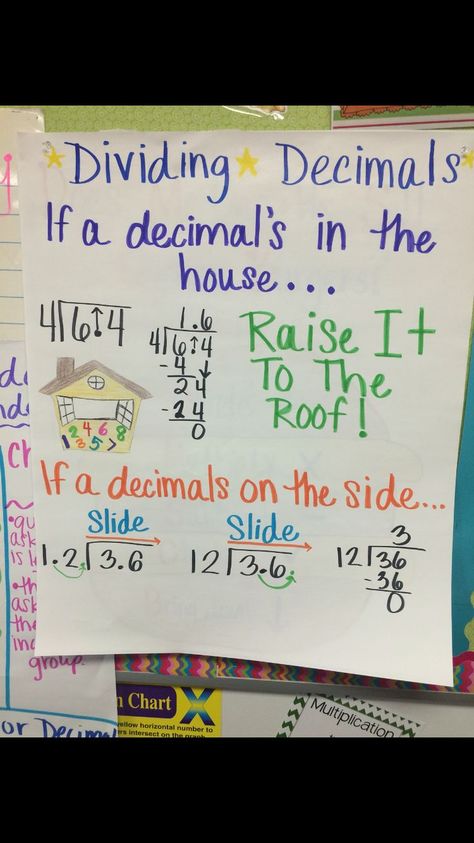 Dividing Decimals
If a decimal's in the
house...
4 6.4
1.6
4 6.4
- 4
24
- 24
0
Raise It
To The
Roof!
2 4 6 8
1 3 5 7
If a decimals on the side...
Slide
1.2 3.6
Slide
12 3.6.
3
12 36
- 36
0
group.
or Decimal
n Chart X
yellow horizontal number to
rs intersect on the graph
Multiplication